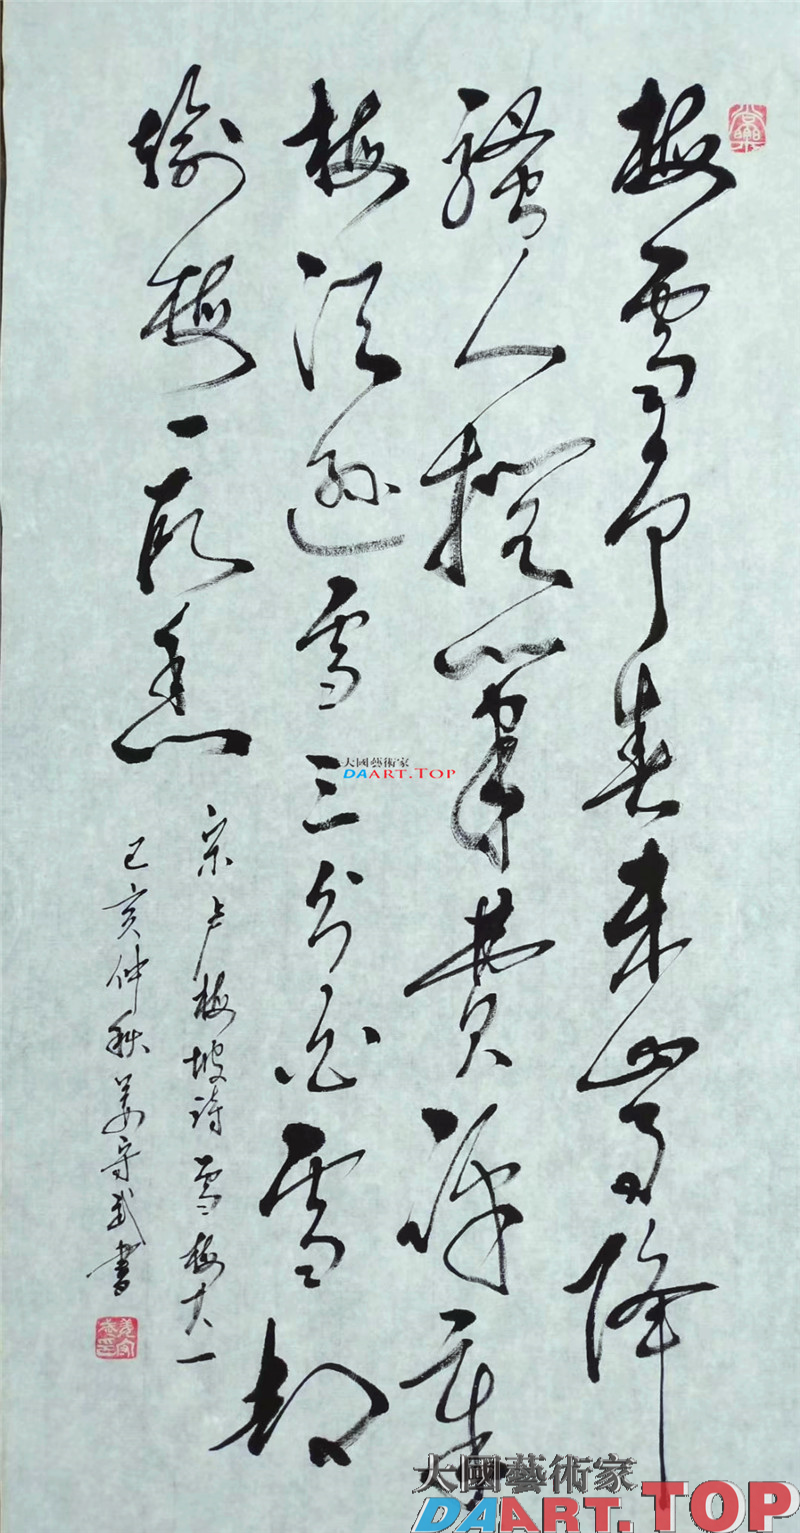 梅雪争春未肯降
騷人擱筆費評章
梅須遜雪三分白雪却
輸梅一段香
宋卢梅坡詩雪梅其一
己亥仲秋姜守武書
大國藝術家
DAART.TOP
大國藝術家
DAART.TOP